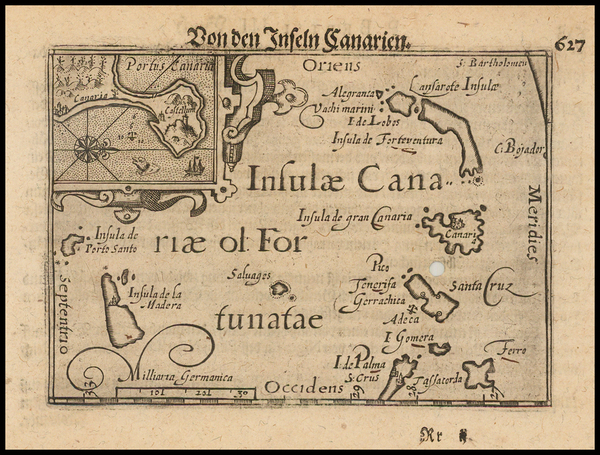 Von den Inseln Canarien.
627
Portus Canaria
Canaria
Castellum
Oriens
S. Bartholomeu
Alegranca
Lansarote Insulæ
Vachi marini
I de Lobos
Insula de Forteventura
C. Bojador
Insulæ Cana
Meridies
Insula de gran Canaria
Canaria
Insula de
Porto Santo
riæ ol: For
Pico
Salvages
Tenerifa
Santa Cruz
Gerrachica
Septentrio
Insula de la
Madera
Adeca
tunatae
I Gomera
Ferro
I de Palma
S. Crus
Tassacorda
Milliaria Germanica
Occidens
10
20
30
29
28
27
Rr